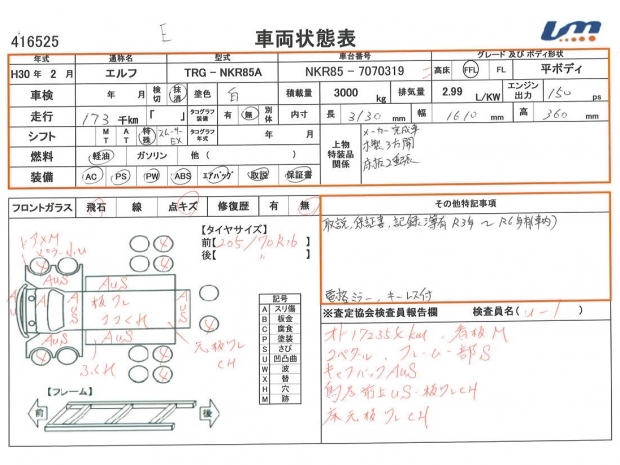 416525
E
車両状態表
Um
年式 通称名 型式 車台番号 グレード及びボディ形状
H30 年 2 月 エルフ TRG - NKR85A NKR85 - 7070319 高床 FFL FL 平ボディ
車検 年 月 検切 抹消 塗色 白 積載量 3000 kg 排気量 2.99 L/KW エンジン出力 150 ps
走行 173 千km 「 」 タコグラフ装備 有 無 別体 内寸 長 3130 mm 幅 1610 mm 高 360 mm
シフト MT AT 特殊 スムーサーEX タコグラフ年式 年 月
上物特装品関係
メーカー完成車
木製3方開
床板2重張
燃料 軽油 ガソリン 他 ( )
装備 AC PS PW ABS エアバッグ 取説 保証書
フロントガラス 飛石 線 点キズ 修復歴 有 無
その他特記事項
取説、保証書、記録簿有 R3年 ~ R6年
電格ミラー、キーレス付
【タイヤサイズ】
前【205/70R16 】
後【 〃 】
AuS
AuS
板ワレ
ココCH
AuS
元板ワレ
CH
AuS
記号
A スリ傷
B 板金
C 腐食
P 塗装
S さび
U 凹凸曲
W 波
X 替
H 穴
M 跡
【フレーム】
前
後
※査定協会検査員報告欄 検査員名( u-1 )
オド173358km 看板M
コペクル、フレーム一部S
キャブバックAUS
鳥居前上US・板ワレCH
床元板ワレCH